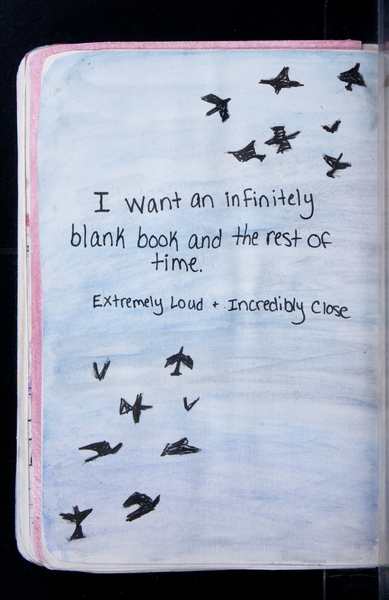 I want an infinitely
blank book and the rest of
time.
Extremely Loud + Incredibly Close